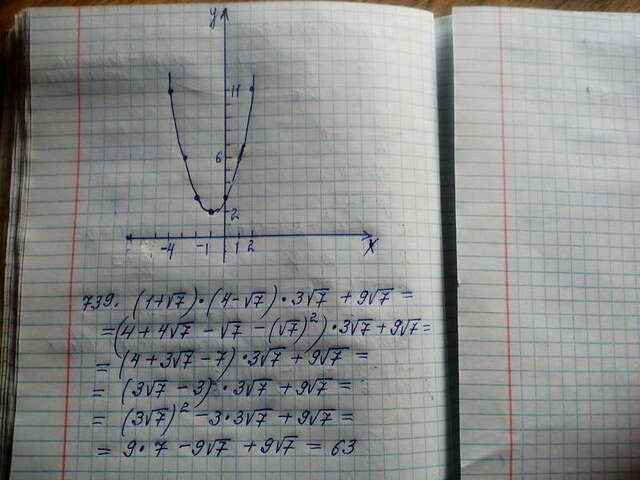 y
11
6
2
-4 -1 1 2 x
739. (1+√7)·(4-√7)·3√7 + 9√7 =
=(4+4√7-√7-(√7)²)·3√7+9√7=
= (4+3√7-7)·3√7+9√7 =
= (3√7-3)·3√7+9√7 =
= (3√7)²-3·3√7+9√7 =
= 9·7-9√7+9√7 = 63